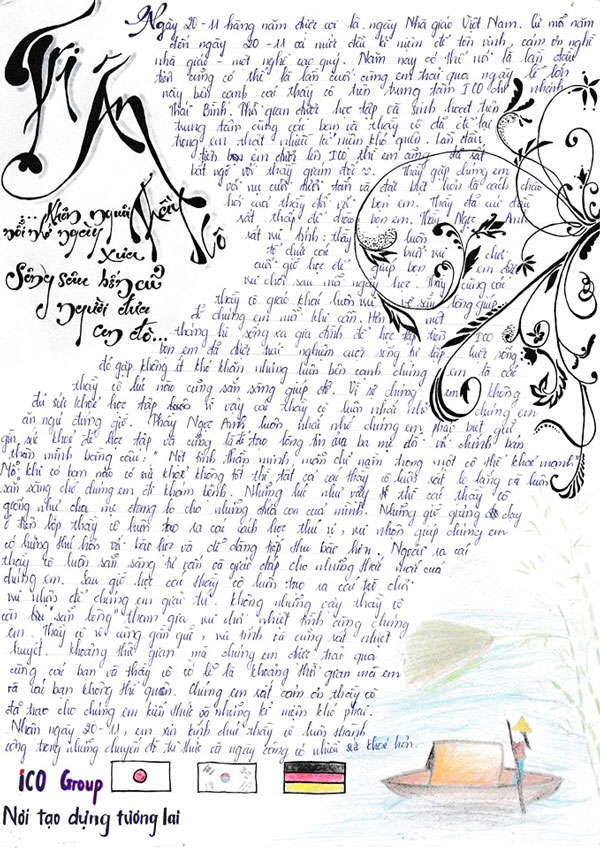 Tri Ân
...Nhân người
nỗi nhớ ngày xưa
Sông sâu
người đưa
đò...
Thầy Cô
Ngày 20-11 hàng năm được coi là ngày Nhà giáo Việt Nam. Cứ mỗi năm
đến ngày 20-11 cả nước đều kỉ niệm để tôn vinh, cảm ơn nghề
nhà giáo - một nghề cao quý. Năm nay có thể nói là lần đầu
tiên cũng có thể là lần cuối cùng em trải qua ngày lễ lớn
này bên cạnh các thầy cô trên trung tâm ICO chi nhánh
Thái Bình. Thời gian được học tập và sinh hoạt trên
trung tâm cùng các bạn và thầy cô đã để lại
trong em thật nhiều kỉ niệm khó quên. Lần đầu
tiên bọn em được lên ICO thì em cũng đã rất
bất ngờ về thầy giám đốc. Thầy gặp chúng em
với nụ cười tươi tắn và đặc biệt hơn là cách chào
hỏi của thầy đối với bọn em. Thầy đã cúi đầu
rất thấp để chào bọn em. Thầy Ngọc Anh
rất vui tính: thầy luôn
tổ chức các buổi vui chơi
cuối giờ học để giúp bọn em được
vui chơi sau mỗi ngày học. Thầy cùng các
thầy cô giáo khác luôn vui vẻ sẵn lòng giúp
đỡ chúng em mỗi khi cần. Hơn một
tháng hè sống xa gia đình để học tập trên ICO
bọn em đã được trải nghiệm cuộc sống tự lập, cuộc sống
đó gặp không ít khó khăn nhưng luôn bên cạnh chúng em là các
thầy cô lúc nào cũng sẵn sàng giúp đỡ. Vì sợ chúng em không
đủ sức khoẻ học tập vì vậy các thầy cô luôn nhắc nhở chúng em
ăn ngủ đúng giờ. Thầy Ngọc Anh luôn nhắc nhở chúng em phải biết giữ
gìn sức khoẻ để học tập và cũng là để tạo lòng tin của ba mẹ đối với chính bản
thân mình bằng câu: "Một tinh thần minh mẫn chỉ nằm trong một cơ thể khoẻ mạnh".
Mỗi khi có bạn nào có vẻ khoẻ không tốt thì tất cả các thầy cô luôn rất lo lắng và luôn
sẵn sàng chở chúng em đi khám bệnh. Những lúc như vậy thì các thầy cô
giống như cha mẹ đang lo cho những đứa con của mình. Những giờ giảng dạy
ở trên lớp thầy cô luôn tạo ra các cách học thú vị, vui nhộn giúp chúng em
có hứng thú hơn với bài học và dễ dàng tiếp thu bài hơn. Ngoài ra các
thầy cô luôn sẵn sàng tư vấn và giải đáp cho những thắc mắc của
chúng em. Sau giờ học các thầy cô luôn tạo ra các trò chơi
vui nhộn để chúng em giải trí. Không những vậy thầy cô
còn "sẵn lòng" tham gia vui chơi nhiệt tình cùng chúng
em. Thầy cô vô cùng gần gũi, vui tính và cũng rất nhiệt
huyết. Khoảng thời gian mà chúng em được trải qua
cùng các bạn và thầy cô có lẽ là khoảng thời gian mà em
và các bạn không thể quên. Chúng em rất cảm ơn thầy cô
đã trao cho chúng em kiến thức và những kỉ niệm khó phai.
Nhân ngày 20-11, em xin kính chúc thầy cô luôn thành
công trong những chuyến đò tri thức và ngày càng có nhiều sức khoẻ hơn.
ICO Group
Nơi tạo dựng tương lai